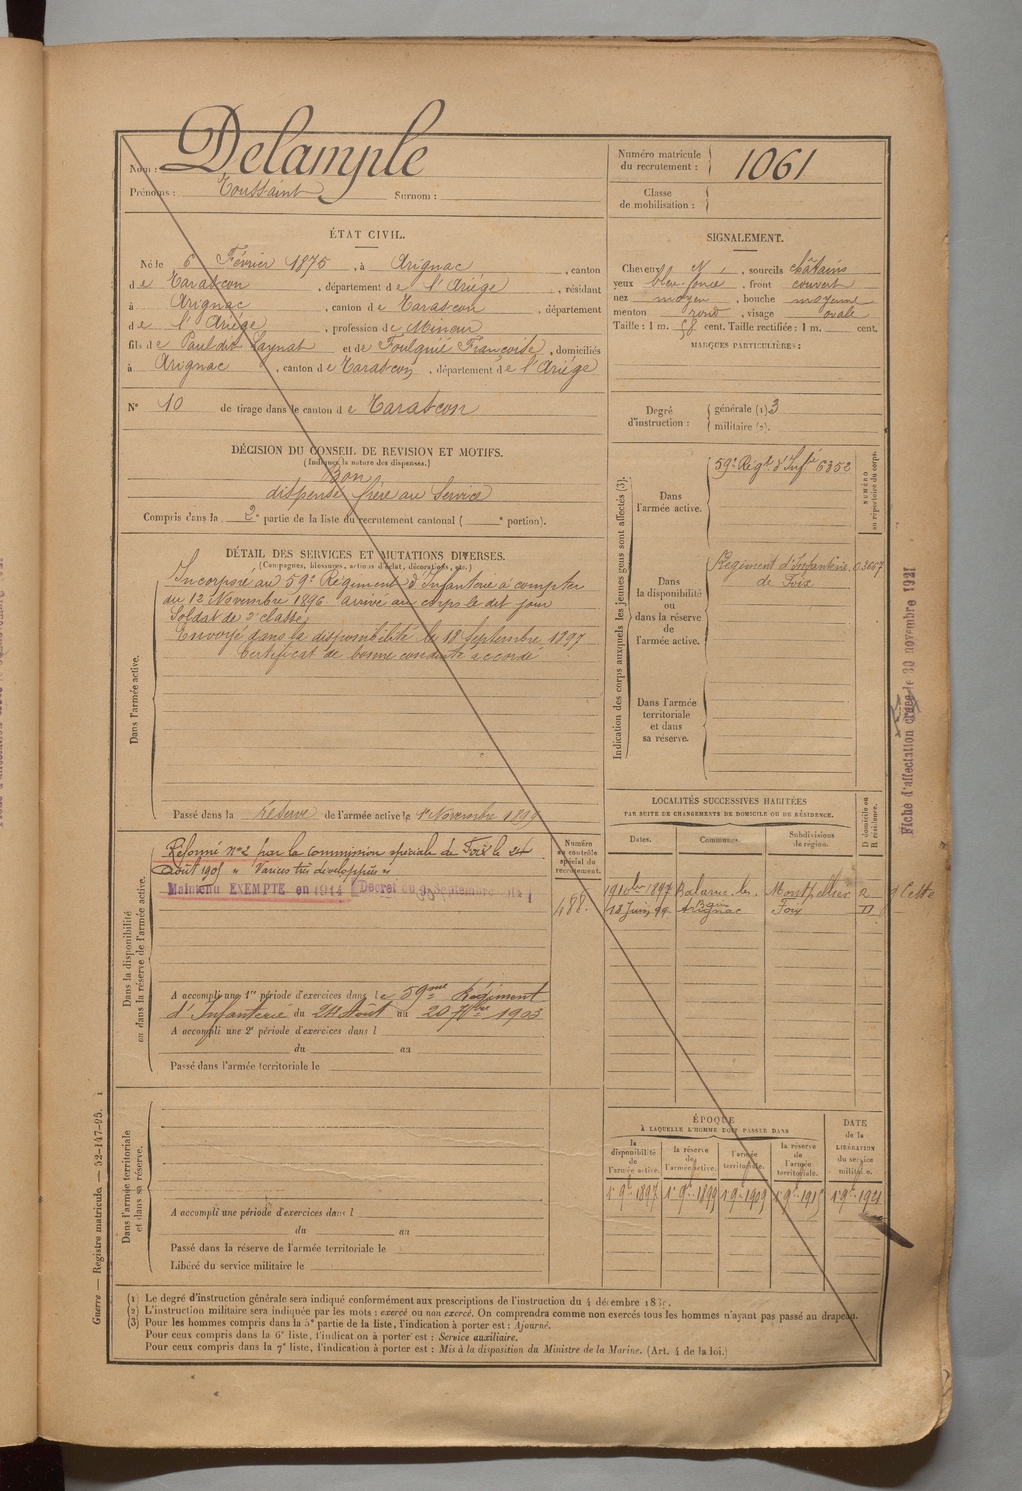 Nom : Delample
Prénoms : Toussaint Surnom :
Numéro matricule
du recrutement : 1061
Classe
de mobilisation :
ÉTAT CIVIL.
Né le 6 Février 1875, à Arignac, canton
de Tarascon, département de l'Ariége, résidant
à Arignac, canton de Tarascon, département
de l'Ariége, profession de Mineur
fils de Paul dit Laynat et de Foulquié Françoise, domiciliés
à Arignac, canton de Tarascon, département de l'Ariége
N° 10 de tirage dans le canton de Tarascon
SIGNALEMENT.
Cheveux N, sourcils châtains
yeux bleu foncé, front couvert
nez moyen, bouche moyenne
menton rond, visage ovale
Taille : 1 m. 58 cent. Taille rectifiée : 1 m. cent.
MARQUES PARTICULIÈRES :
Degré
d'instruction :
générale (1) 3
militaire (2).
DÉCISION DU CONSEIL DE REVISION ET MOTIFS.
(Indiquer la nature des dispenses.)
Bon
dispensé frère au Service
Compris dans la 2e partie de la liste du recrutement cantonal ( e portion).
DÉTAIL DES SERVICES ET MUTATIONS DIVERSES.
(Campagnes, blessures, actions d'éclat, décorations, etc.)
Dans l'armée active.
Incorporé au 59e Régiment d'Infanterie à compter
du 12 Novembre 1896 arrivé au corps le dit jour
Soldat de 2e classe,
Envoyé dans la disponibilité le 18 Septembre 1897
Certificat de bonne conduite accordé
Passé dans la réserve de l'armée active le 1er Novembre 1899
Indication des corps auxquels les jeunes gens sont affectés (3).
NUMÉRO
au répertoire du corps.
Dans
l'armée active.
59e Régt d'Infie 6352
Dans
la disponibilité
ou
dans la réserve
de
l'armée active.
Régiment d'Infanterie 03667
de Foix
Dans l'armée
territoriale
et dans
sa réserve.
Fiche d'affectation créée le 30 novembre 1921
Dans la disponibilité
ou dans la réserve de l'armée active.
Réformé n° 2 par la commission spéciale de Foix le 24
Août 1905 " Varices très développées "
Maintenu EXEMPTÉ en 1914 (Décret du 9 Septembre 1914)
Numéro
au contrôle
spécial du
recrutement.
488.
A accompli une 1re période d'exercices dans le 59me Régiment
d'Infanterie du 24 Août au 20 7bre 1903
A accompli une 2e période d'exercices dans l
du au
Passé dans l'armée territoriale le
LOCALITÉS SUCCESSIVES HABITÉES
PAR SUITE DE CHANGEMENTS DE DOMICILE OU DE RÉSIDENCE.
D domicile ou
R résidence.
Dates. Communes. Subdivisions
de région.
9 10bre 1897 Balaruc les Bains Montpellier R g Cette
18 Juin 99 Arignac Foix D
Dans l'armée territoriale
et dans sa réserve.
A accompli une période d'exercices dans l
du au
Passé dans la réserve de l'armée territoriale le
Libéré du service militaire le
ÉPOQUE
À LAQUELLE L'HOMME DOIT PASSER DANS
DATE
de la
LIBÉRATION
du service
militaire.
la
disponibilité
de
l'armée active.
la réserve
de
l'armée active.
l'armée
territoriale.
la réserve
de
l'armée
territoriale.
1er 9bre 1897 1er 9bre 1899 1er 9bre 1909 1er 9bre 1915 1er 9bre 1921
(1) Le degré d'instruction générale sera indiqué conformément aux prescriptions de l'instruction du 4 décembre
(2) L'instruction militaire sera indiquée par les mots : exercé ou non exercé. On comprendra comme non exercés tous les hommes n'ayant pas passé au drapeau.
(3) Pour les hommes compris dans la 5e partie de la liste, l'indication à porter est : Ajourné.
Pour ceux compris dans la 6e liste, l'indication à porter est : Service auxiliaire.
Pour ceux compris dans la 7e liste, l'indication à porter est : Mis à la disposition du Ministre de la Marine. (Art. 4 de la loi.)
Guerre — Registre matricule. — 52-147-95. 1